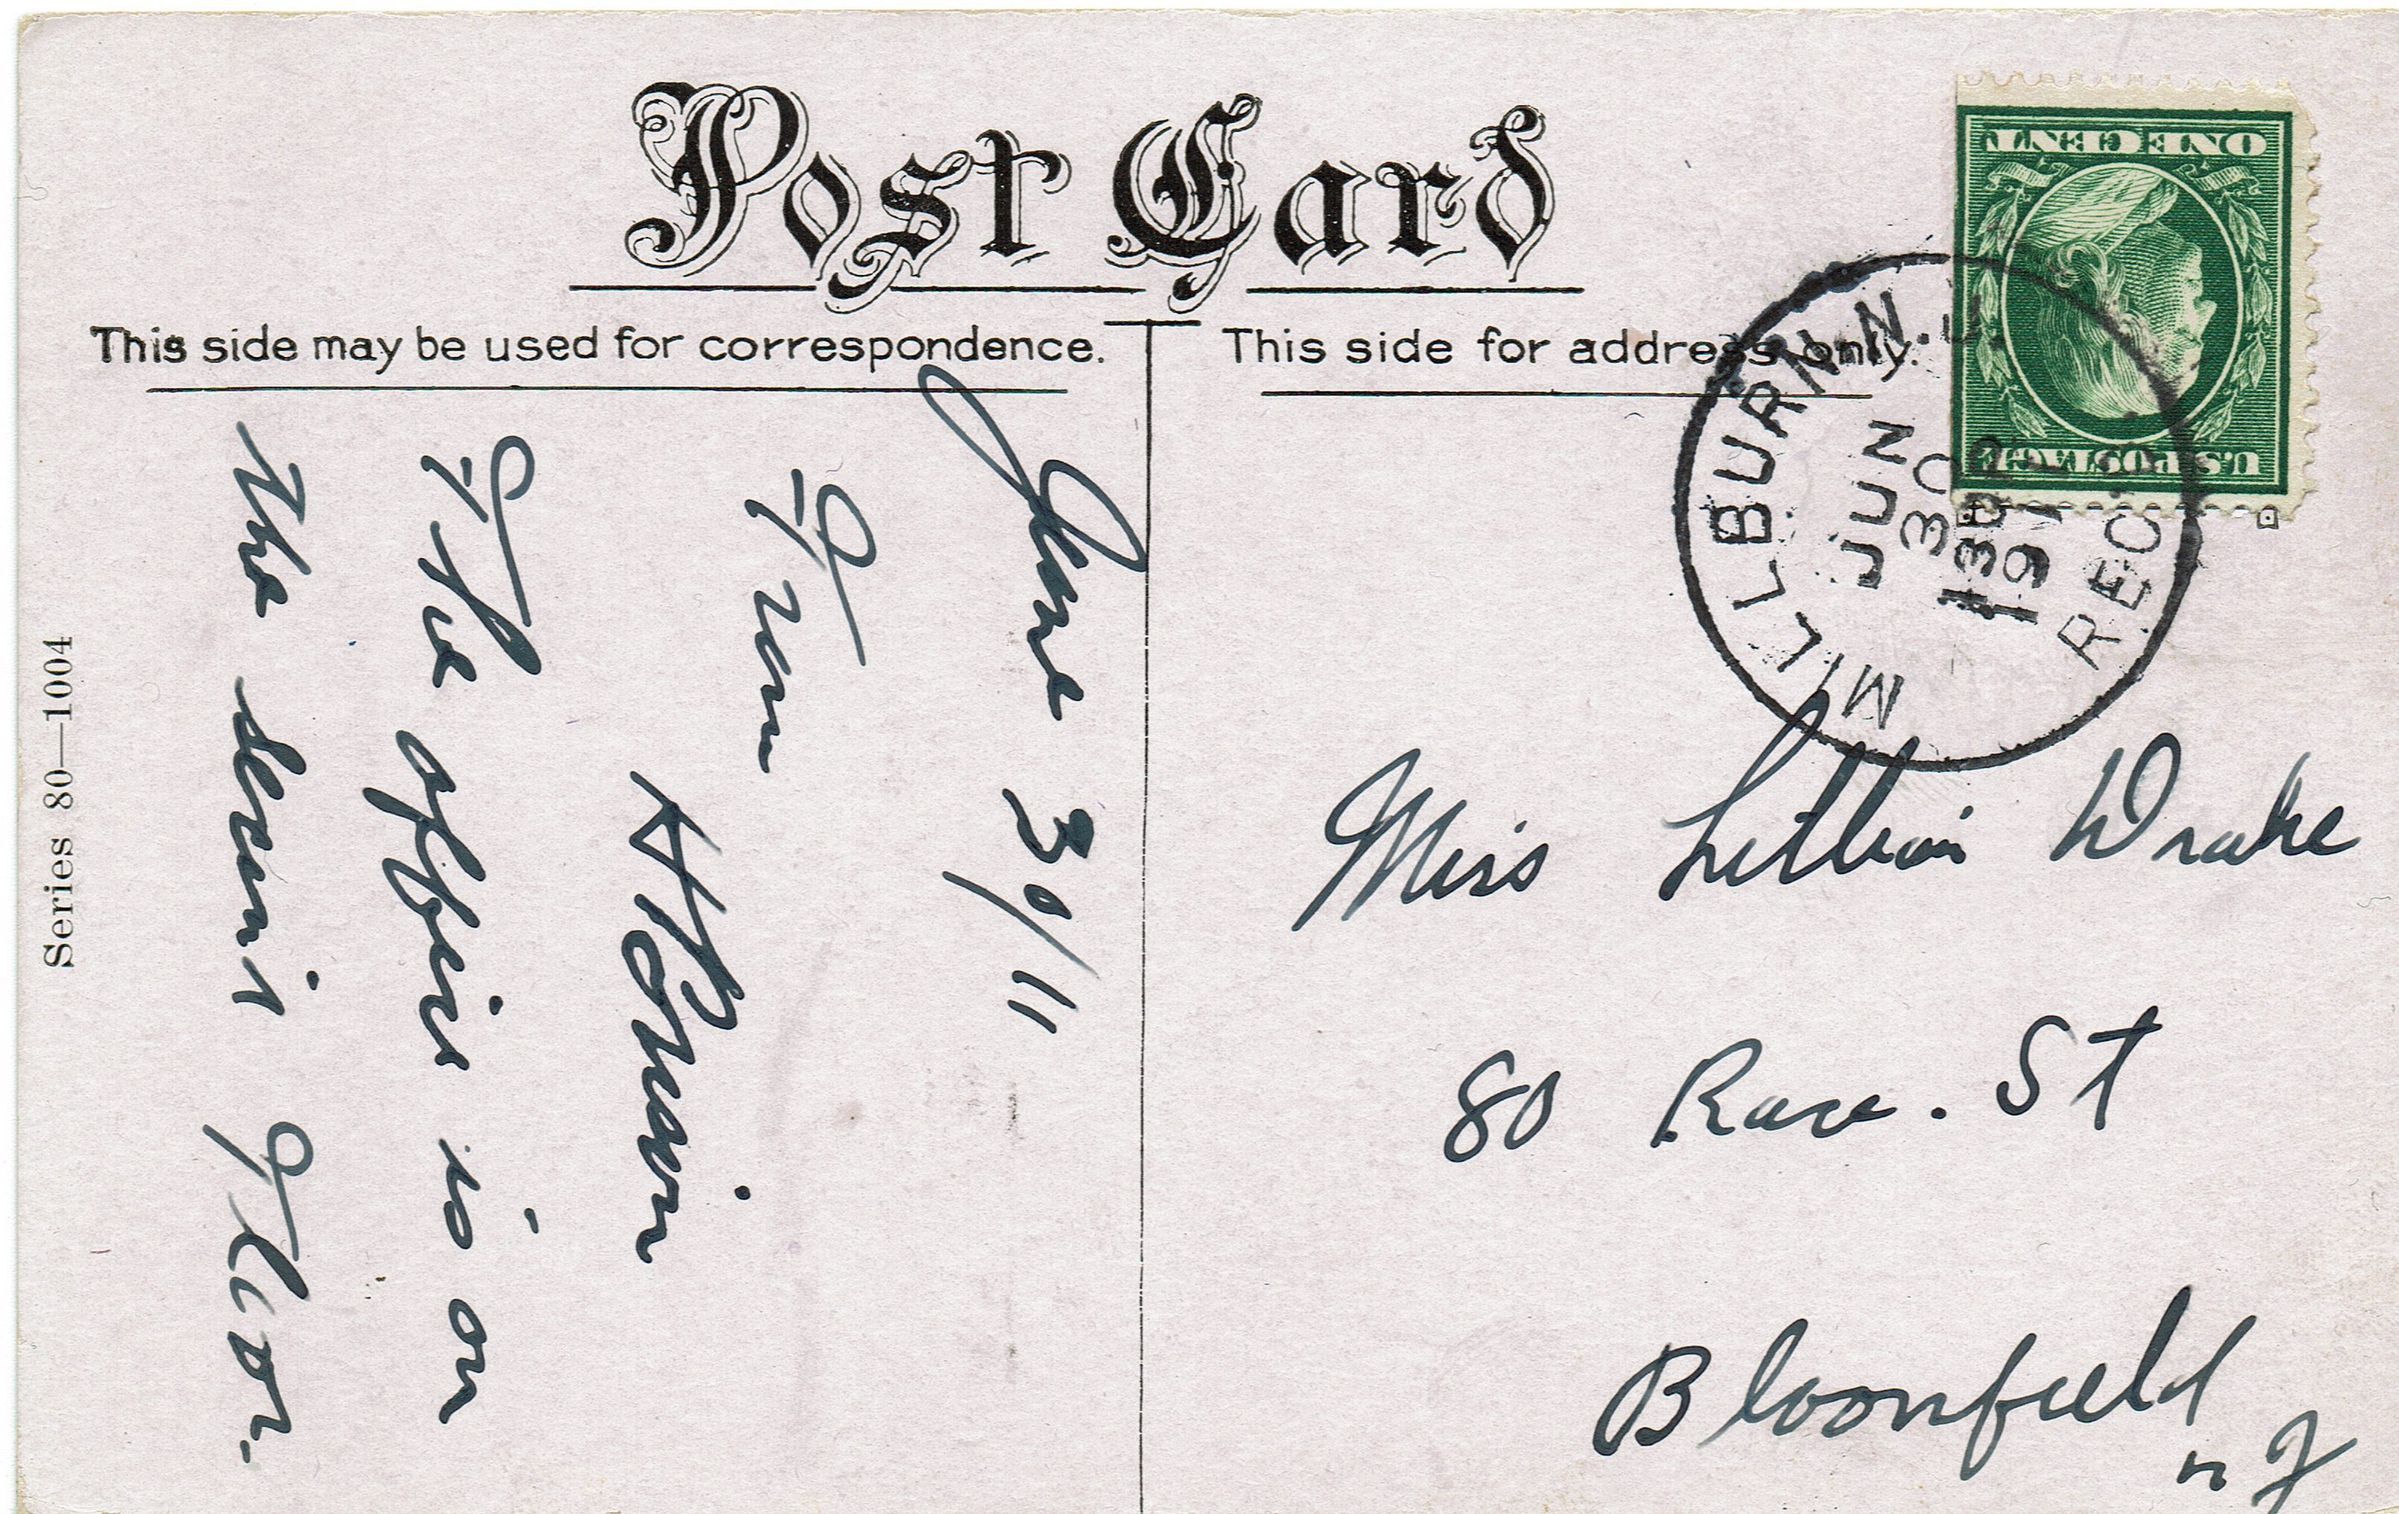 Post Card
This side may be used for correspondence.
This side for address only.
ONE CENT
U.S. POSTAGE
MILLBURN N.J.
JUN
30
130P
191
REC'D
June 30/11
From
The office is on
the semi Floor.
Miss Lillian Drake
80 Race. St
Bloomfield
n J
Series 80—1004